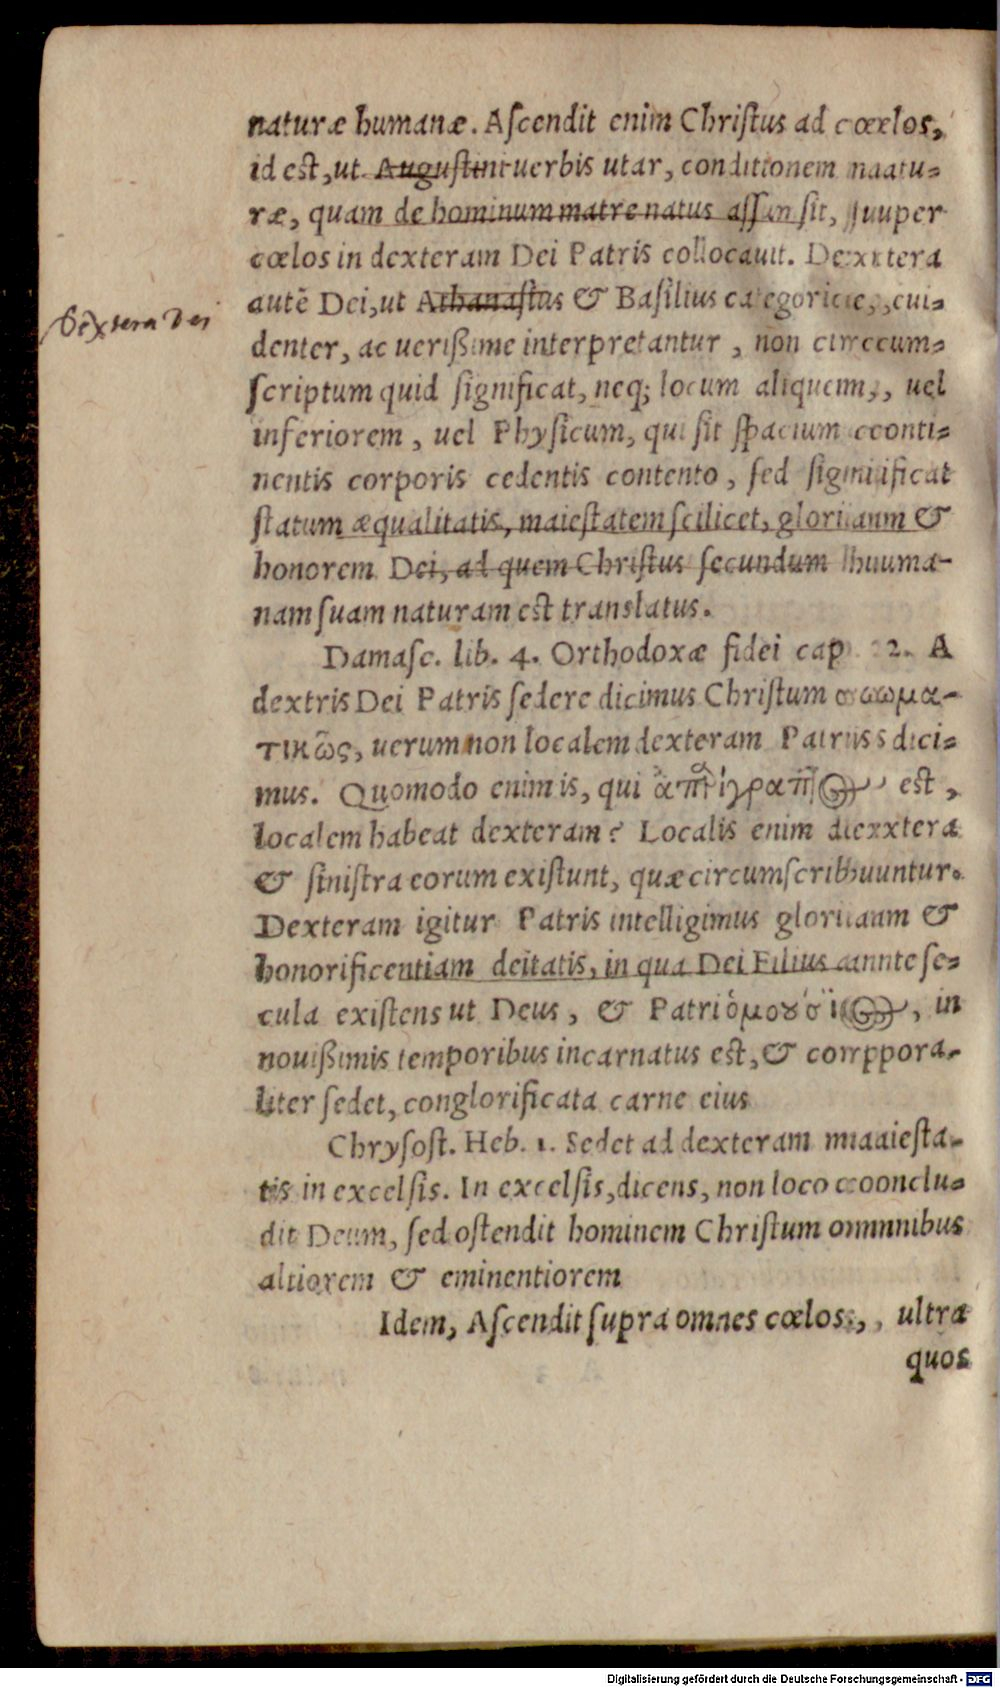 naturæ humanæ. Ascendit enim Christus ad cœlos,
id est, ut Augustini uerbis utar, conditionem natu-
ræ, quam de hominum matre natus assumsit, super
cœlos in dexteram Dei Patris collocauit. Dextera
autē Dei, ut Athanasius & Basilius categoricè, eui-
Dextera Dei
denter, ac uerißime interpretantur, non circum-
scriptum quid significat, neq; locum aliquem, uel
inferiorem, uel Physicum, qui sit spacium conti-
nentis corporis cedentis contento, sed significat
statum æqualitatis, maiestatem scilicet, gloriam &
honorem Dei, ad quem Christus secundum huma-
nam suam naturam est translatus.
Damasc. lib. 4. Orthodoxæ fidei cap. 2. A
dextris Dei Patris sedere dicimus Christum σωμα-
τικῶς, uerum non localem dexteram Patris dici-
mus. Quomodo enim is, qui est,
localem habeat dexteram? Localis enim dextera
& sinistra eorum existunt, quæ circumscribuntur.
Dexteram igitur Patris intelligimus gloriam &
honorificentiam deitatis, in qua Dei Filius ante se-
cula existens ut Deus, & Patri ὁμούσιος, in
nouißimis temporibus incarnatus est, & corpora-
liter sedet, conglorificata carne eius
Chrysost. Heb. 1. Sedet ad dexteram maiesta-
tis in excelsis. In excelsis, dicens, non loco conclu-
dit Deum, sed ostendit hominem Christum omnibus
altiorem & eminentiorem
Idem, Ascendit supra omnes cœlos, ultra
quos
Digitalisierung gefördert durch die Deutsche Forschungsgemeinschaft - DFG